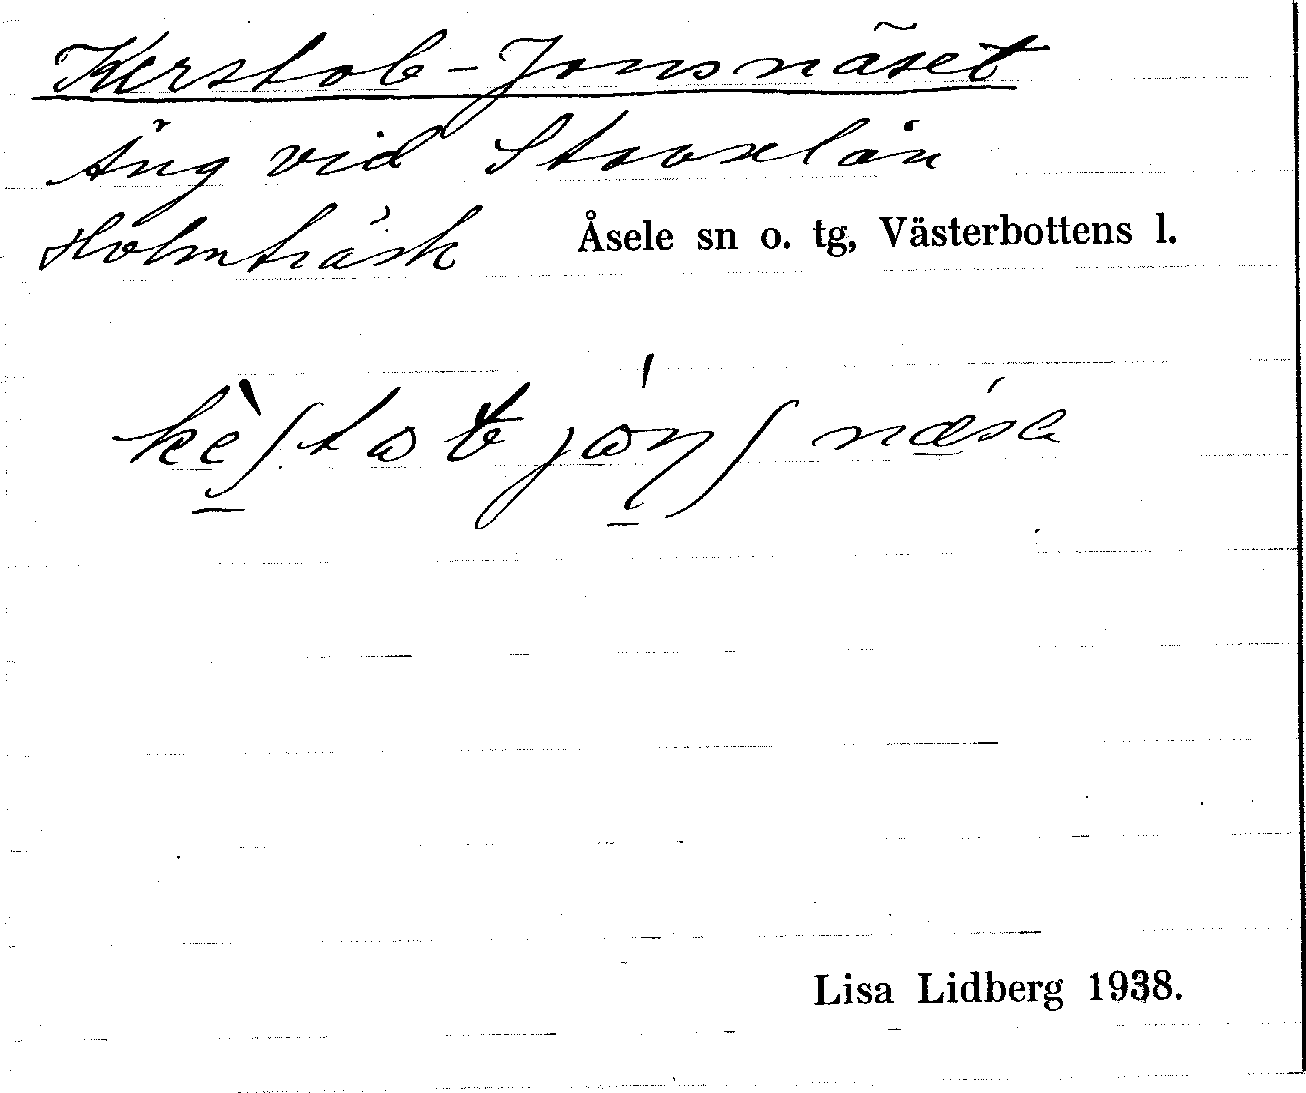 Kerstob-Jonsnäset
Äng vid Stavselån
Holmträsk Åsele sn o. tg, Västerbottens l.
Lisa Lidberg 1938.